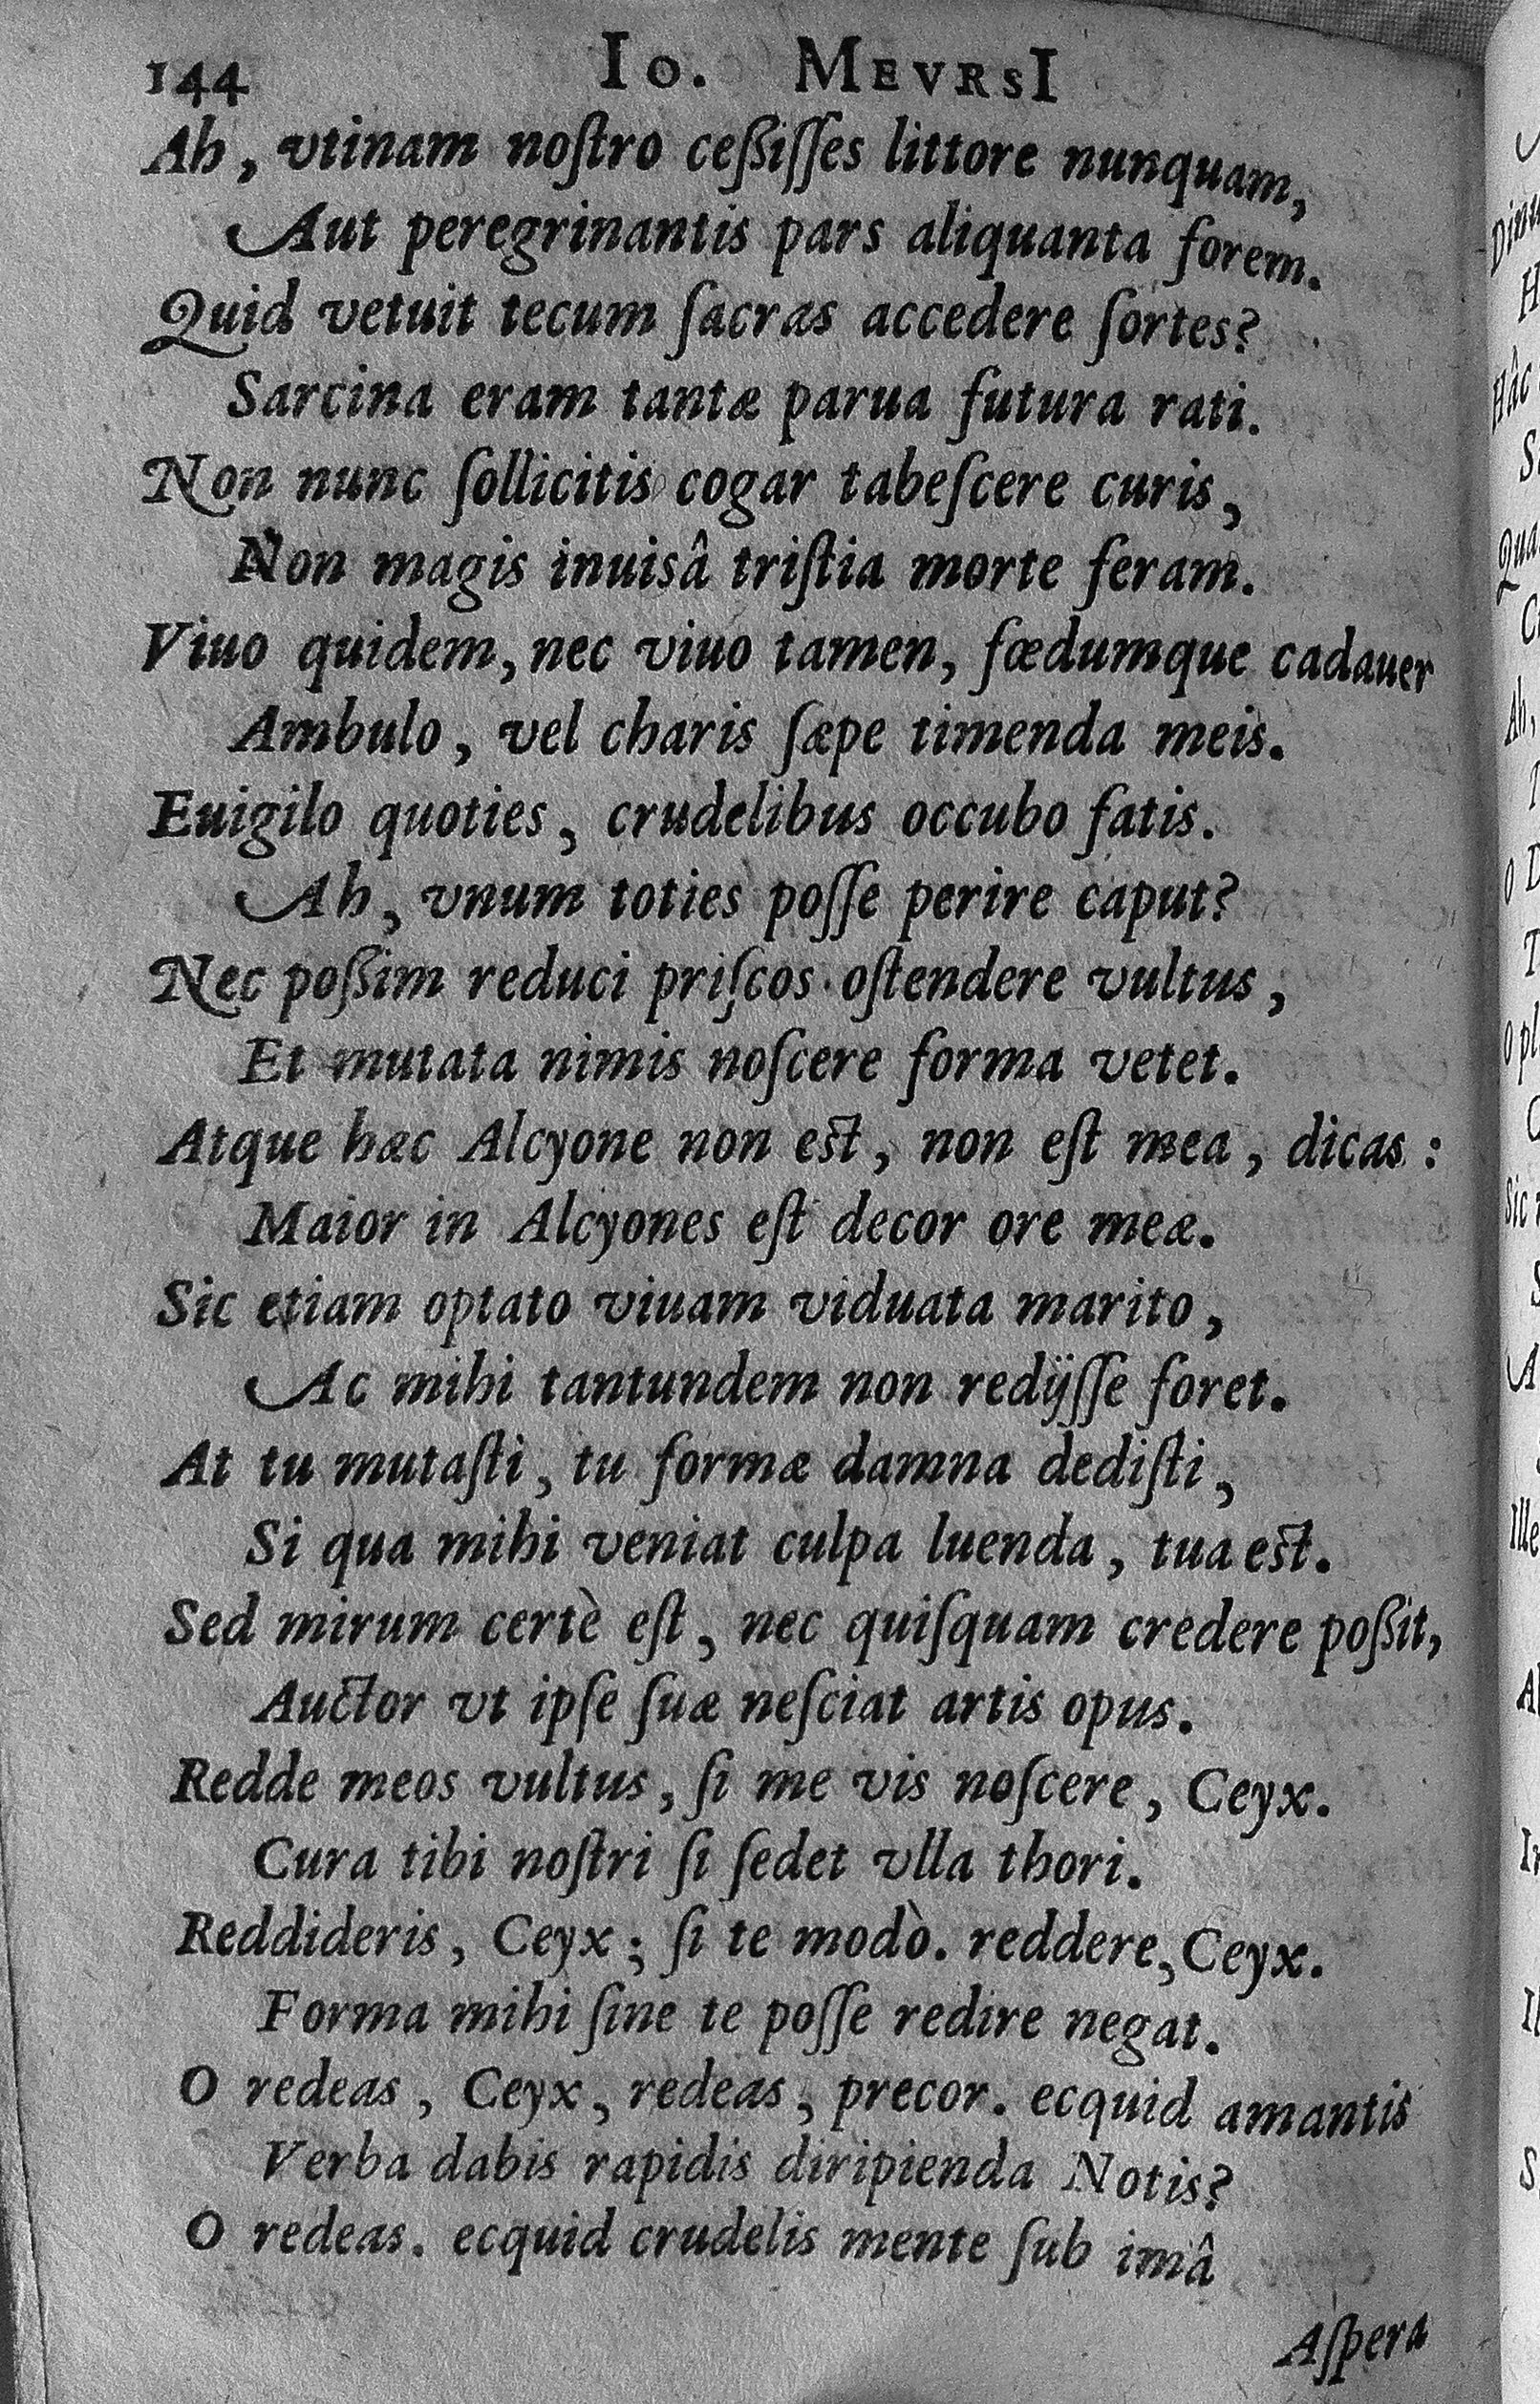 144 Io. MEVRSI
Ah, vtinam noſtro ceßiſſes littore nunquam,
Aut peregrinantis pars aliquanta forem.
Quid vetuit tecum ſacras accedere ſortes?
Sarcina eram tantæ parua futura rati.
Non nunc ſollicitis cogar tabeſcere curis,
Non magis inuisâ triſtia morte feram.
Viuo quidem, nec viuo tamen, fœdumque cadauer
Ambulo, vel charis ſæpe timenda meis.
Euigilo quoties, crudelibus occubo fatis.
Ah, vnum toties poſſe perire caput?
Nec poßim reduci priſcos oſtendere vultus,
Et mutata nimis noſcere forma vetet.
Atque hæc Alcyone non est, non eſt mea, dicas:
Maior in Alcyones eſt decor ore meæ.
Sic etiam optato viuam viduata marito,
Ac mihi tantundem non redijſſe foret.
At tu mutaſti, tu formæ damna dediſti,
Si qua mihi veniat culpa luenda, tua est.
Sed mirum certè eſt, nec quiſquam credere poßit,
Auctor vt ipſe ſuæ neſciat artis opus.
Redde meos vultus, ſi me vis noſcere, Ceyx.
Cura tibi noſtri ſi ſedet vlla thori.
Reddideris, Ceyx; ſi te modò. reddere, Ceyx.
Forma mihi ſine te poſſe redire negat.
O redeas, Ceyx, redeas, precor. ecquid amantis
Verba dabis rapidis diripienda Notis?
O redeas. ecquid crudelis mente ſub imâ
Aſpera